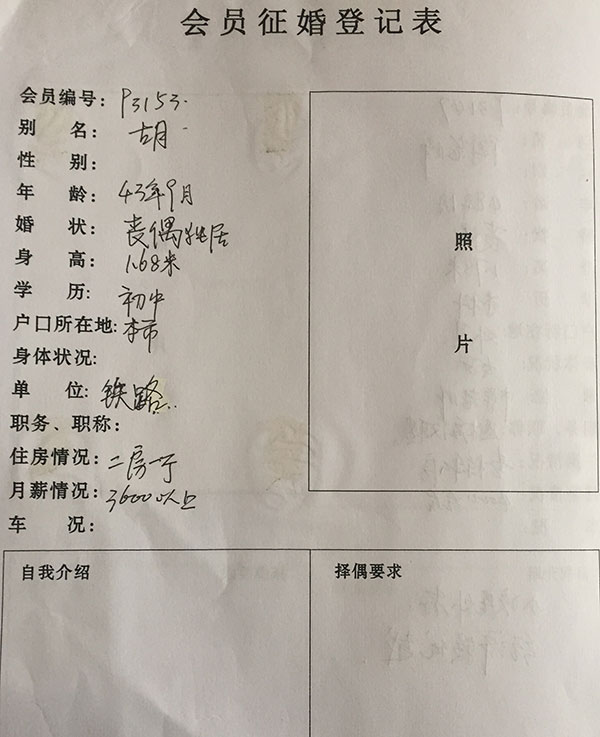 会员征婚登记表
会员编号: P3153.
别 名: 胡
性 别:
年 龄: 43年9月
婚 状: 丧偶独居
身 高: 1.68米
学 历: 初中
户口所在地: 本市
身体状况:
单 位: 铁路..
职务、职称:
住房情况: 二房一厅
月薪情况: 3600以上
车 况:
照
片
自我介绍
择偶要求